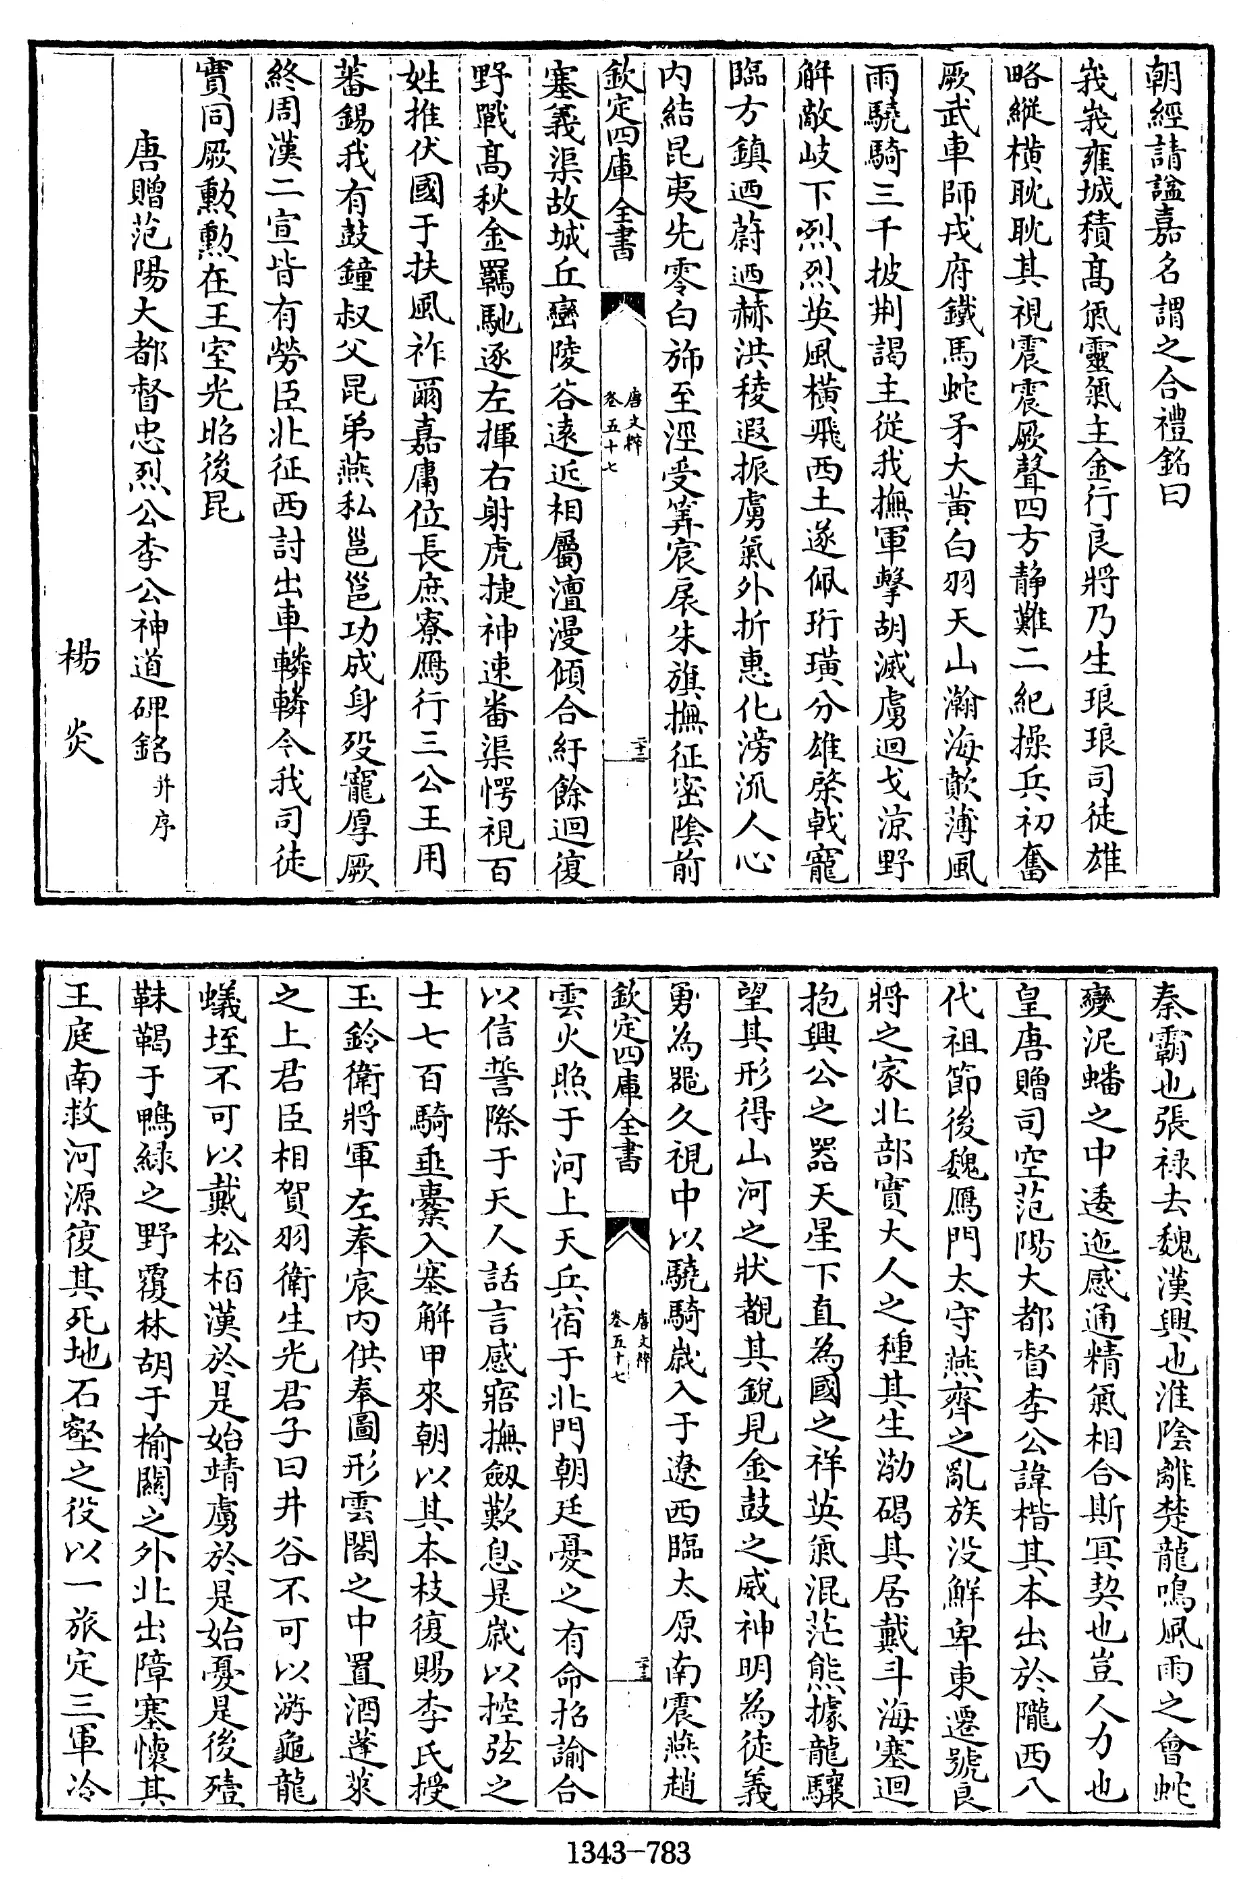 朝經請諡嘉名謂之合禮銘曰
峩峩雍城積髙氣靈氣主金行良將乃生琅琅司徒雄
略縱橫耽耽其視震震厥聲四方静難二紀操兵初奮
厥武車師戎府鐵馬蛇矛大黄白羽天山瀚海歕薄風
雨驍騎三千披荆謁主從我撫軍擊胡滅虜迴戈涼野
解敵岐下烈烈英風橫飛西土遂佩珩璜分雄棨戟寵
臨方鎮迺蔚迺赫洪稜遐振虜氣外折惠化滂流人心
内結昆夷先零白斾至涇受筭宸扆朱旗撫征密陰前
欽定四庫全書
唐文粹
卷五十七
二十二
塞義渠故城丘巒陵谷逺近相屬澶漫傾合紆餘迴復
野戰髙秋金羈馳逐左揮右射虎捷神速畨渠愕視百
姓推伏國于扶風祚爾嘉庸位長庶寮鴈行三公王用
蕃錫我有鼓鐘叔父昆弟燕私邕邕功成身歿寵厚厥
終周漢二宣皆有勞臣北征西討出車轔轔令我司徒
寳同厥勳勲在王室光昭後昆
唐贈范陽大都督忠烈公李公神道碑銘并序
楊炎
秦霸也張禄去魏漢興也淮陰離楚龍鳴風雨之會蛇
變泥蟠之中逶迤感通精氣相合斯冥契也豈人力也
皇唐贈司空范陽大都督李公諱楷其本出於隴西八
代祖節後魏鴈門太守燕齊之亂族没鮮卑東遷號良
將之家北部實大人之種其生渤碣其居戴斗海塞迴
抱興公之器天星下直為國之祥英氣混茫熊據龍驤
望其形得山河之狀覩其銳見金鼓之威神明為徒義
勇為罷久視中以驍騎歲入于遼西臨太原南震燕趙
欽定四庫全書
唐文粹
卷五十七
二十三
雲火照于河上天兵宿于北門朝廷憂之有命招諭台
以信誓際于天人話言感寤撫劔歎息是歲以控弦之
士七百騎垂櫜入塞解甲來朝以其本枝復賜李氏授
玉鈐衛將軍左奉宸内供奉圖形雲閣之中置酒蓬萊
之上君臣相賀羽衛生光君子曰井谷不可以游龜龍
蟻垤不可以戴松柏漢於是始靖虜於是始憂是後殪
靺鞨于鴨緑之野覆林胡于榆關之外北出障塞懷其
王庭南救河源復其死地石壑之役以一旅定三軍冷
1343-783